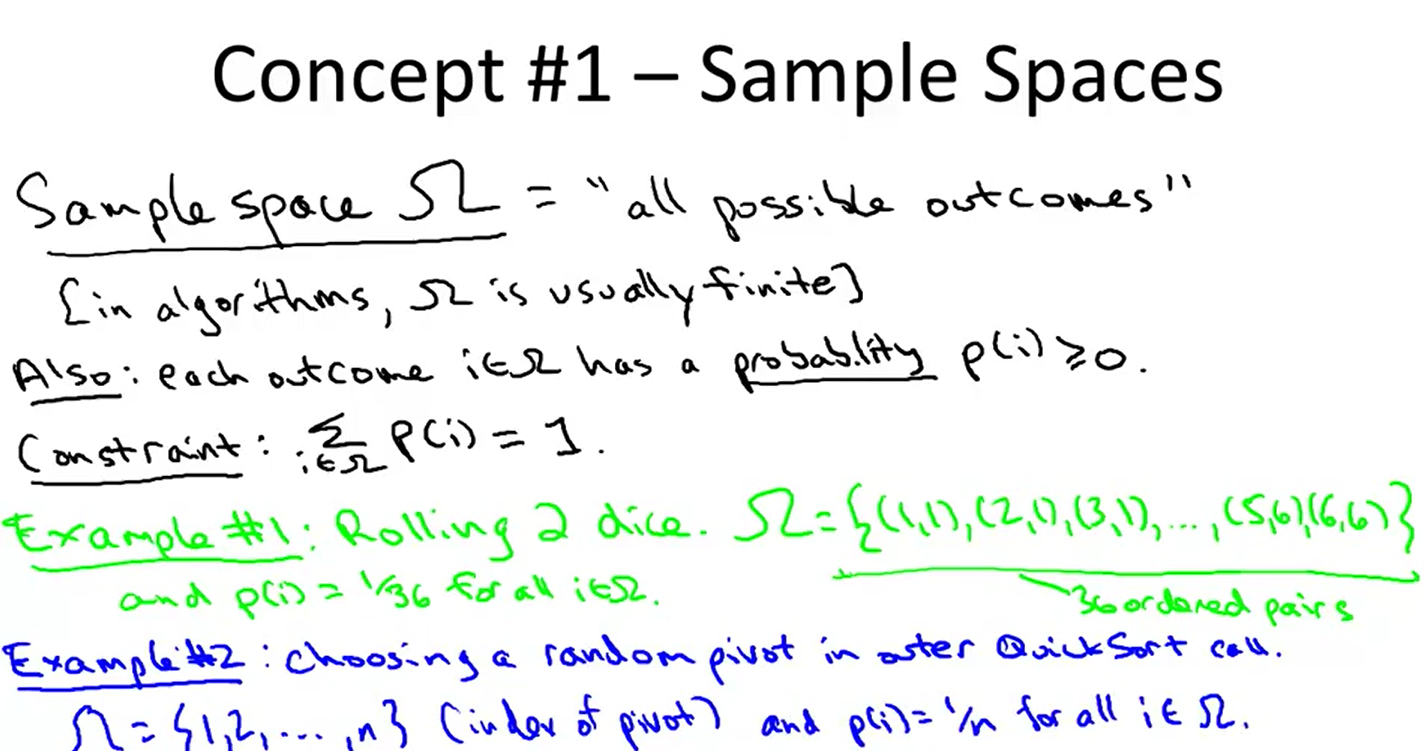 Concept #1 – Sample Spaces
Sample space Ω = "all possible outcomes"
[in algorithms, Ω is usually finite]
Also: each outcome i∈Ω has a probability p(i) ≥ 0.
Constraint: ∑ i∈Ω p(i) = 1.
Example #1: Rolling 2 dice. Ω = {(1,1),(2,1),(3,1),...,(5,6),(6,6)}
and p(i) = 1/36 for all i∈Ω.
36 ordered pairs
Example #2: choosing a random pivot in outer QuickSort call.
Ω = {1,2,...,n} (index of pivot) and p(i) = 1/n for all i∈Ω.